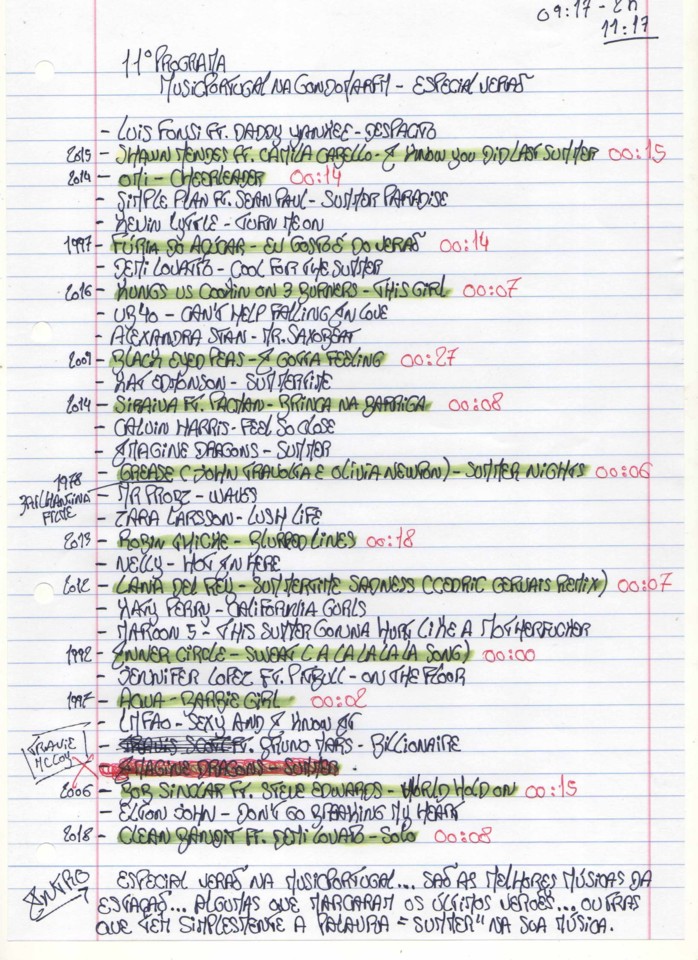 09:17 - 2H
11:17
11º PROGRAMA
MUSICPORTUGAL NA GONDOMARFM - ESPECIAL VERÃO
- LUIS FONSI FT. DADDY YANKEE - DESPACITO
2015 - SHAWN MENDES FT. CAMILA CABELLO - I KNOW YOU DID LAST SUMMER 00:15
2014 - OMI - CHEERLEADER 00:14
- SIMPLE PLAN FT. SEAN PAUL - SUMMER PARADISE
- KEVIN LYTTLE - TURN ME ON
1997 - FÚRIA DO AÇÚCAR - EU GOSTO É DO VERÃO 00:14
- DEMI LOVATO - COOL FOR THE SUMMER
2016 - KUNGS VS COOKIN ON 3 BURNERS - THIS GIRL 00:07
- UB40 - CAN'T HELP FALLING IN LOVE
- ALEXANDRA STAN - MR. SAXOBEAT
2009 - BLACK EYED PEAS - I GOTTA FEELING 00:27
- KAT EDMONSON - SUMMERTIME
2014 - SIRAIVA FT. PACMAN - BRINCA NA BARRIGA 00:08
- CALVIN HARRIS - FEEL SO CLOSE
- IMAGINE DRAGONS - SUMMER
- GREASE (JOHN TRAVOLTA E OLIVIA NEWRN) - SUMMER NIGHTS 00:06
1978
BRILHANTINA
FILME
- MR PROBZ - WAVES
- ZARA LARSSON - LUSH LIFE
2013 - ROBIN THICHE - BLURRED LINES 00:18
- NELLY - HOT IN HERE
2012 - LANA DEL REY - SUMMERTIME SADNESS (CEDRIC GERVAIS REMIX) 00:07
- KATY PERRY - CALIFORNIA GORLS
- MAROON 5 - THIS SUMMER GONNA HURT LIKE A MOTHERFUCHER
1992 - INNER CIRCLE - SWEAT (A LA LA LA LA SONG) 00:00
- JENNIFER LOPEZ FT. PITBULL - ON THE FLOOR
1997 - AQUA - BARBIE GIRL 00:02
- LMFAO - SEXY AND I KNOW IT
TRAVIE
MCCOY
- TRAVIS SCOTT FT. BRUNO MARS - BILLIONAIRE
- IMAGINE DRAGONS - SUMMER
2006 - BOB SINCLAR FT. STEVE EDWARDS - WORLD HOLD ON 00:15
- ELTON JOHN - DON'T GO BREAKING MY HEART
2018 - CLEAN BANDIT FT. DEMI LOVATO - SOLO 00:08
INTRO
ESPECIAL VERÃO NA MUSICPORTUGAL... SÃO AS MELHORES MÚSICAS DA
ESTAÇÃO... ALGUMAS QUE MARCARAM OS ÚLTIMOS VERÕES... OUTRAS
QUE TEM SIMPLESMENTE A PALAVRA "SUMMER" NA SUA MÚSICA.